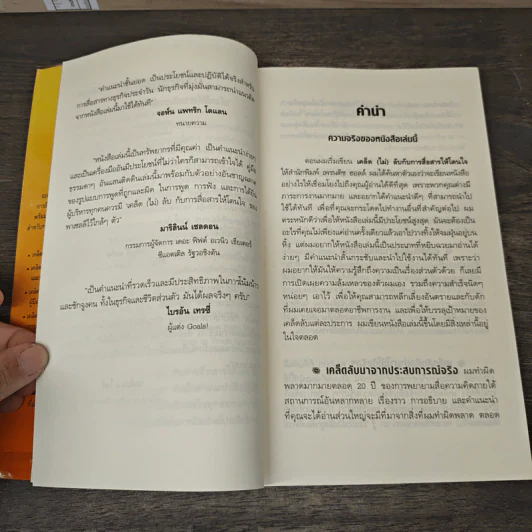 "คำแนะนำชั้นยอด เป็นประโยชน์และปฏิบัติได้จริงสำหรับ
การสื่อสารทางธุรกิจประจำวัน นักธุรกิจที่มุ่งมั่นสามารถนำแนวคิด
จากหนังสือเล่มนี้มาใช้ได้ทันที"
จอห์น แพทริก โดแลน
ทนายความ
"หนังสือเล่มนี้เป็นทรัพยากรที่มีคุณค่า เป็นคำแนะนำง่ายๆ
และเป็นเครื่องมืออันมีประโยชน์ที่ไม่ว่าใครก็สามารถเข้าใจได้ คู่มือ
ธรรมดาๆ อันแสนติดดินเล่มนี้มาพร้อมกับตัวอย่างอันชาญฉลาด
ของรูปแบบการพูดที่ถูกและผิด ในการพูด การฟัง และการได้ยิน
ผู้บริหารทุกคนควรมี เคล็ด (ไม่) ลับ กับการสื่อสารให้โดนใจ ของ
พาเสลลีไว้ใกล้ๆ ตัว"
มาริลีนน์ เซลดอน
กรรมการผู้จัดการ เดอะ ฟิฟท์ อเวนิว เธียเตอร์
ซีแอตเติล รัฐวอชิงตัน
"เป็นคำแนะนำที่รวดเร็วและมีประสิทธิภาพในการโน้มน้าว
และชักจูงคน ทั้งในธุรกิจและชีวิตส่วนตัว มันได้ผลจริงๆ ครับ"
ไบรอัน เทรซี่
ผู้แต่ง Goals!
คำนำ
ความจริงของหนังสือเล่มนี้
ตอนลงมือเขียน เคล็ด (ไม่) ลับกับการสื่อสารให้โดนใจ
ให้สำนักพิมพ์ เพรนติซ ฮอลล์ ผมได้ค้นหาตัวเองว่าจะเขียนหนังสือ
อย่างไรให้เชื่อมโยงไปถึงคุณผู้อ่านได้ดีที่สุด เพราะพวกคุณต่างมี
ภาระการงานมากมาย และอยากได้คำแนะนำดีๆ ที่สามารถนำไป
ใช้ได้ทันที เพื่อที่คุณจะกระโดดไปทำงานอื่นที่สำคัญต่อไป ผม
ตระหนักดีว่าเพื่อให้หนังสือเล่มนี้มีประโยชน์สูงสุด มันจะต้องเป็น
อะไรที่คุณไม่เพียงแค่อ่านครั้งเดียวแล้วเอาไปวางทิ้งให้จมฝุ่นอยู่บน
หิ้ง แต่ผมอยากให้หนังสือเล่มนี้เป็นประเภทที่หยิบฉวยมาอ่านได้
ง่ายๆ มีคำแนะนำสั้นกระชับและนำไปใช้งานได้ทันที เพราะว่า
ผมอยากให้มันให้ความรู้สึกถึงความเป็นเรื่องส่วนตัวด้วย ก็เลยมี
การเปิดเผยความล้มเหลวของตัวผมเอง รวมถึงความสำเร็จนิดๆ
หน่อยๆ เอาไว้ เพื่อให้คุณสามารถหลีกเลี่ยงอันตรายและกับดัก
ที่ผมเคยเจอมาตลอดอาชีพการงาน และเพื่อให้บรรลุเป้าหมายของ
เคล็ดลับแต่ละประการ ผมเขียนหนังสือเล่มนี้ขึ้นโดยมีสิ่งเหล่านี้อยู่
ในใจตลอด
เคล็ดลับมาจากประสบการณ์จริง ผมทำผิด
พลาดมากมายตลอด 20 ปี ของการพยายามสื่อความคิดภายใต้
สถานการณ์อันหลากหลาย เรื่องราว การอธิบาย และคำแนะนำ
ที่คุณจะได้อ่านส่วนใหญ่จะมีที่มาจากสิ่งที่ผมทำผิดพลาด ตลอด